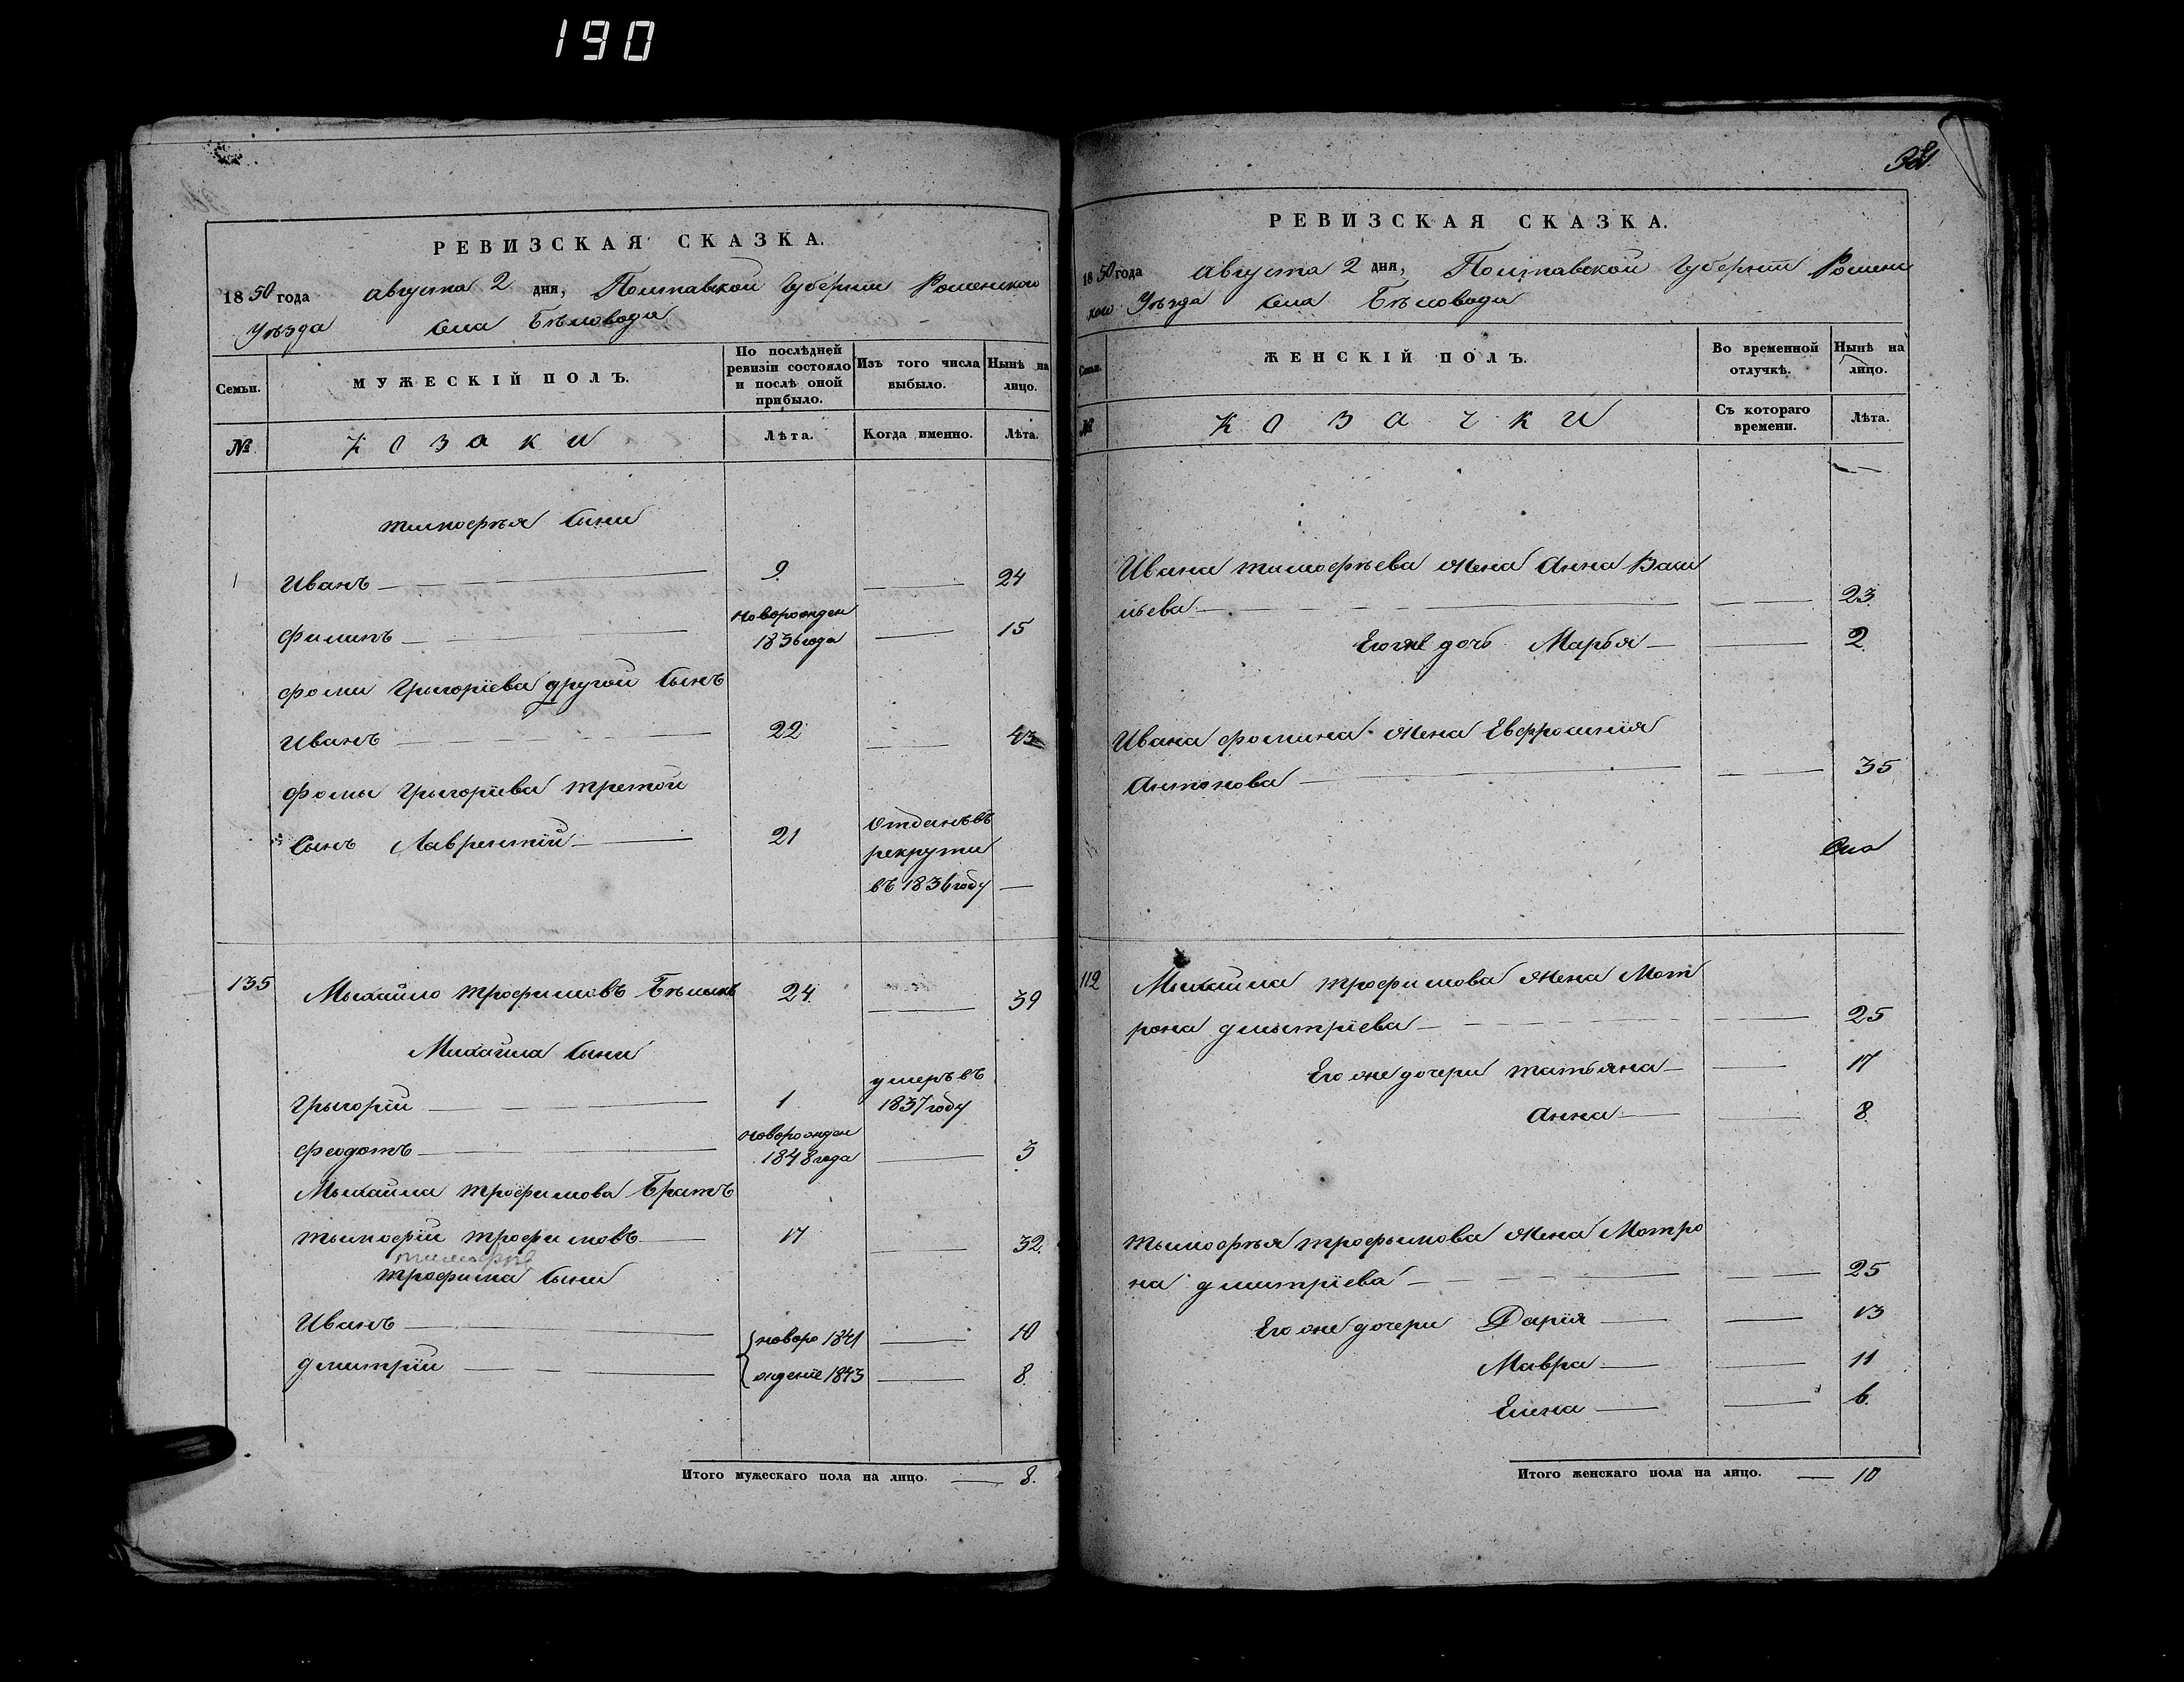 190
РЕВИЗСКАЯ СКАЗКА.
1850 года августа 2 дня, Полтавской Губернии Роменского
Уѣзда села Бѣловода
Семьи.
МУЖЕСКІЙ ПОЛЪ.
По послѣдней ревизіи состояло и послѣ оной прибыло.
Изъ того числа выбыло.
Нынѣ на лицо.
№
козаки
Лѣта.
Когда именно.
Лѣта.
тимофѣя сыни
Иванъ 9. 24
Филипъ новорожден 1836 года 15
Фоми Григоріева другой сынъ
Иванъ 22 43
Фомы Григоріева третой
сынъ Лаврентій 21 отданъ въ рекрути въ 1836 году
135 Михайло трофимовъ Бѣлыкъ 24. 39
Михаила сыни
Григорій 1 умеръ въ 1837 году
Феодотъ новорожден 1848 года 3
Михаила трофимова Братъ
тымофій трофимовъ 17 32.
тимофѣя
трофима сыни
Иванъ новоро 1841 10
дмитрій ждение 1843 8.
Итого мужескаго пола на лицо. 8.
РЕВИЗСКАЯ СКАЗКА.
1850 года августа 2 дня, Полтавской Губерніи Роменс
кого Уѣзда села Бѣловода
Семьи.
ЖЕНСКІЙ ПОЛЪ.
Во временной отлучкѣ.
Нынѣ на лицо.
№
козачки
Съ котораго времени.
Лѣта.
Ивана тимофѣева жена Анна Васи
льева 23.
Его же дочь Марья 2
Ивана фомина жена Евфросинія
Антонова 35
112 Михаила трофимова жена Мот
рона дмытріева 25
Его же дочери татьяна 17
Анна 8.
тымофѣя трофымова жена Мотро
на дмитріева 25
Его же дочери Дарія 13
Мавра 11
Елена 6.
Итого женскаго пола на лицо. 10